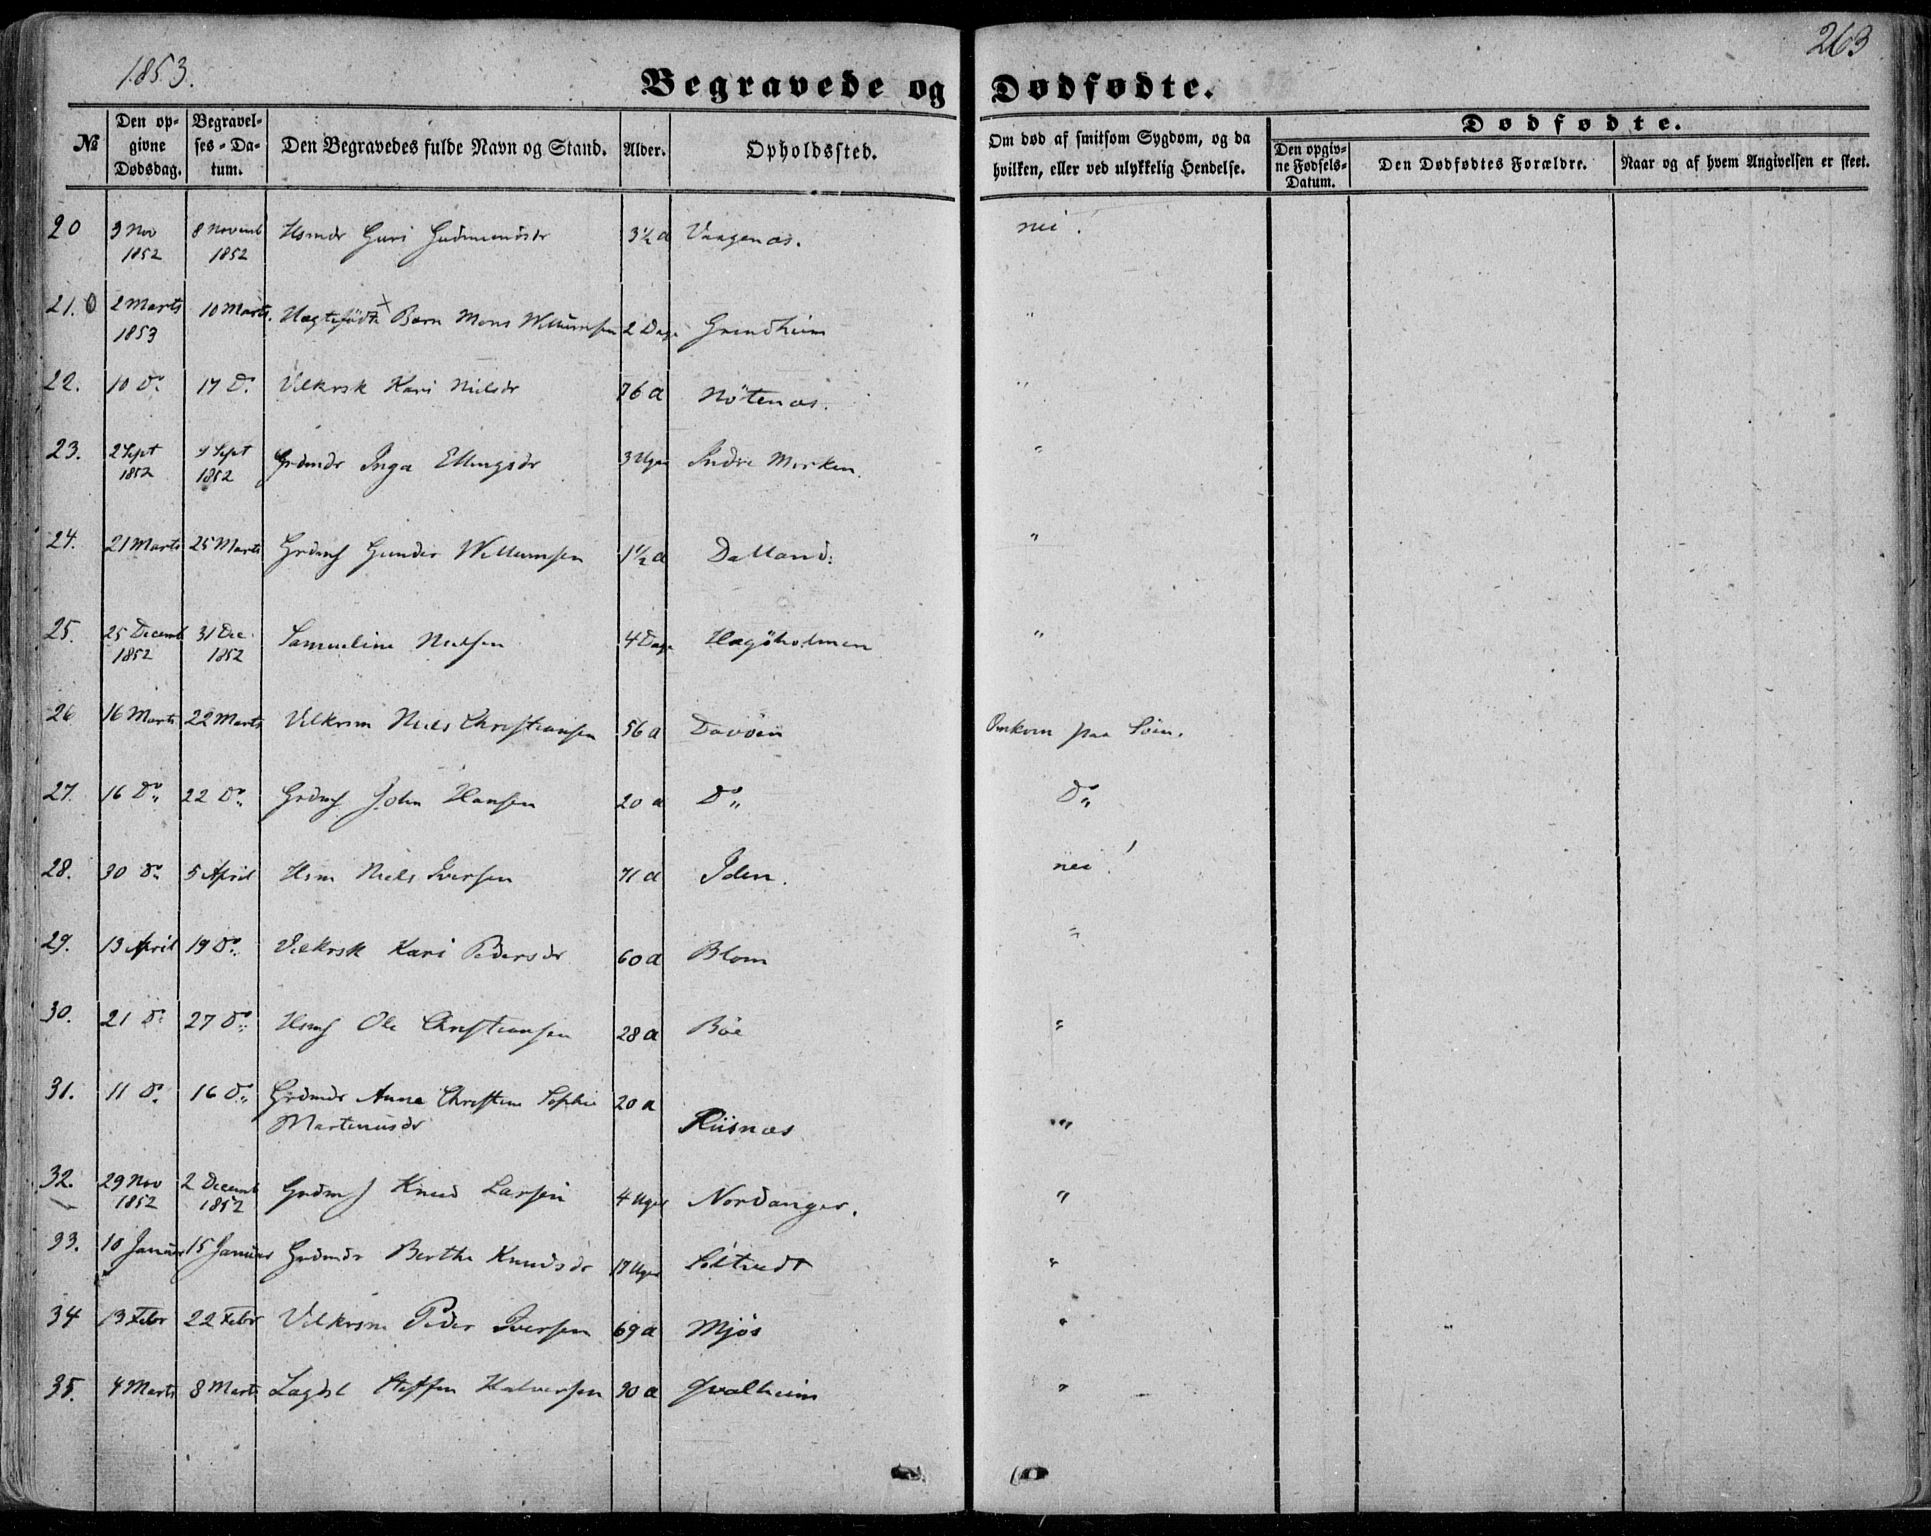 1853.
263
Begravede og Dødfødte.
№ Den opgivne Dødsdag. Begravelses-Datum. Den Begravedes fulde Navn og Stand. Alder. Opholdssted. Om død af smitsom Sygdom, og da hvilken, eller ved ulykkelig Hendelse. Dødfødte. Den opgivne Fødsels-Datum. Den Dødfødtes Forældre. Naar og af hvem Angivelsen er skeet.
20 3 Nov 1852 8 Novemb 1852 Hsmdr Guri Gudmundsdr 3½ a Vaagenæs. nei.
21. 0 2 Marts 1853 10 Marts. Uægtefödt Barn Mons Willumsen 2 Dage Grindheim "
22. 10 Do 17 Do Vilkrsk Kari Nielsdr 76 a Nötenæs. "
23. 2 Sept 1852 9 Sept 1852 Grdmdr Inga Ellingsdr 3 Uger Indre Merken "
24. 21 Marts 25 Marts Grdms Gunder Willumsen 1½ a Dalland. "
25. 25 Decemb 1852 31 Dec. 1852 Samueline Nielsen 4 Dage Hægöholmen "
26 16 Marts 22 Marts Vilkrsm Niels Christiansen 56 a Davöen Omkom paa Söen.
27. 16 Do 22 Do Grdms John Hansen 20 a Do Do
28. 30 Do 5 April Hsm Niels Iversen 71 a Iden. nei!
29. 13 April 19 Do Vilkrsk Kari Pedersdr 60 a Blom "
30. 21 Do 27 Do Hsms Ole Christiansen 28 a Böe "
31. 11 Do 16 Do Grdmdr Anne Christine Sophie 20 a
Martinusdr Riisnæs "
32. 29 Nov 1852 2 Decemb 1852 Grdms Knud Larsen 4 Uger Nordanger. "
33. 10 Januar 15 Januar Grdmdr Berthe Knudsdr 17 Uger Söltvedt "
34 13 Febr 22 Febr Vilkrsm Peder Iversen 69 a Mjös "
35. 4 Marts 8 Marts Lægdsl Steffen Halvorsen 90 a Qvalheim "